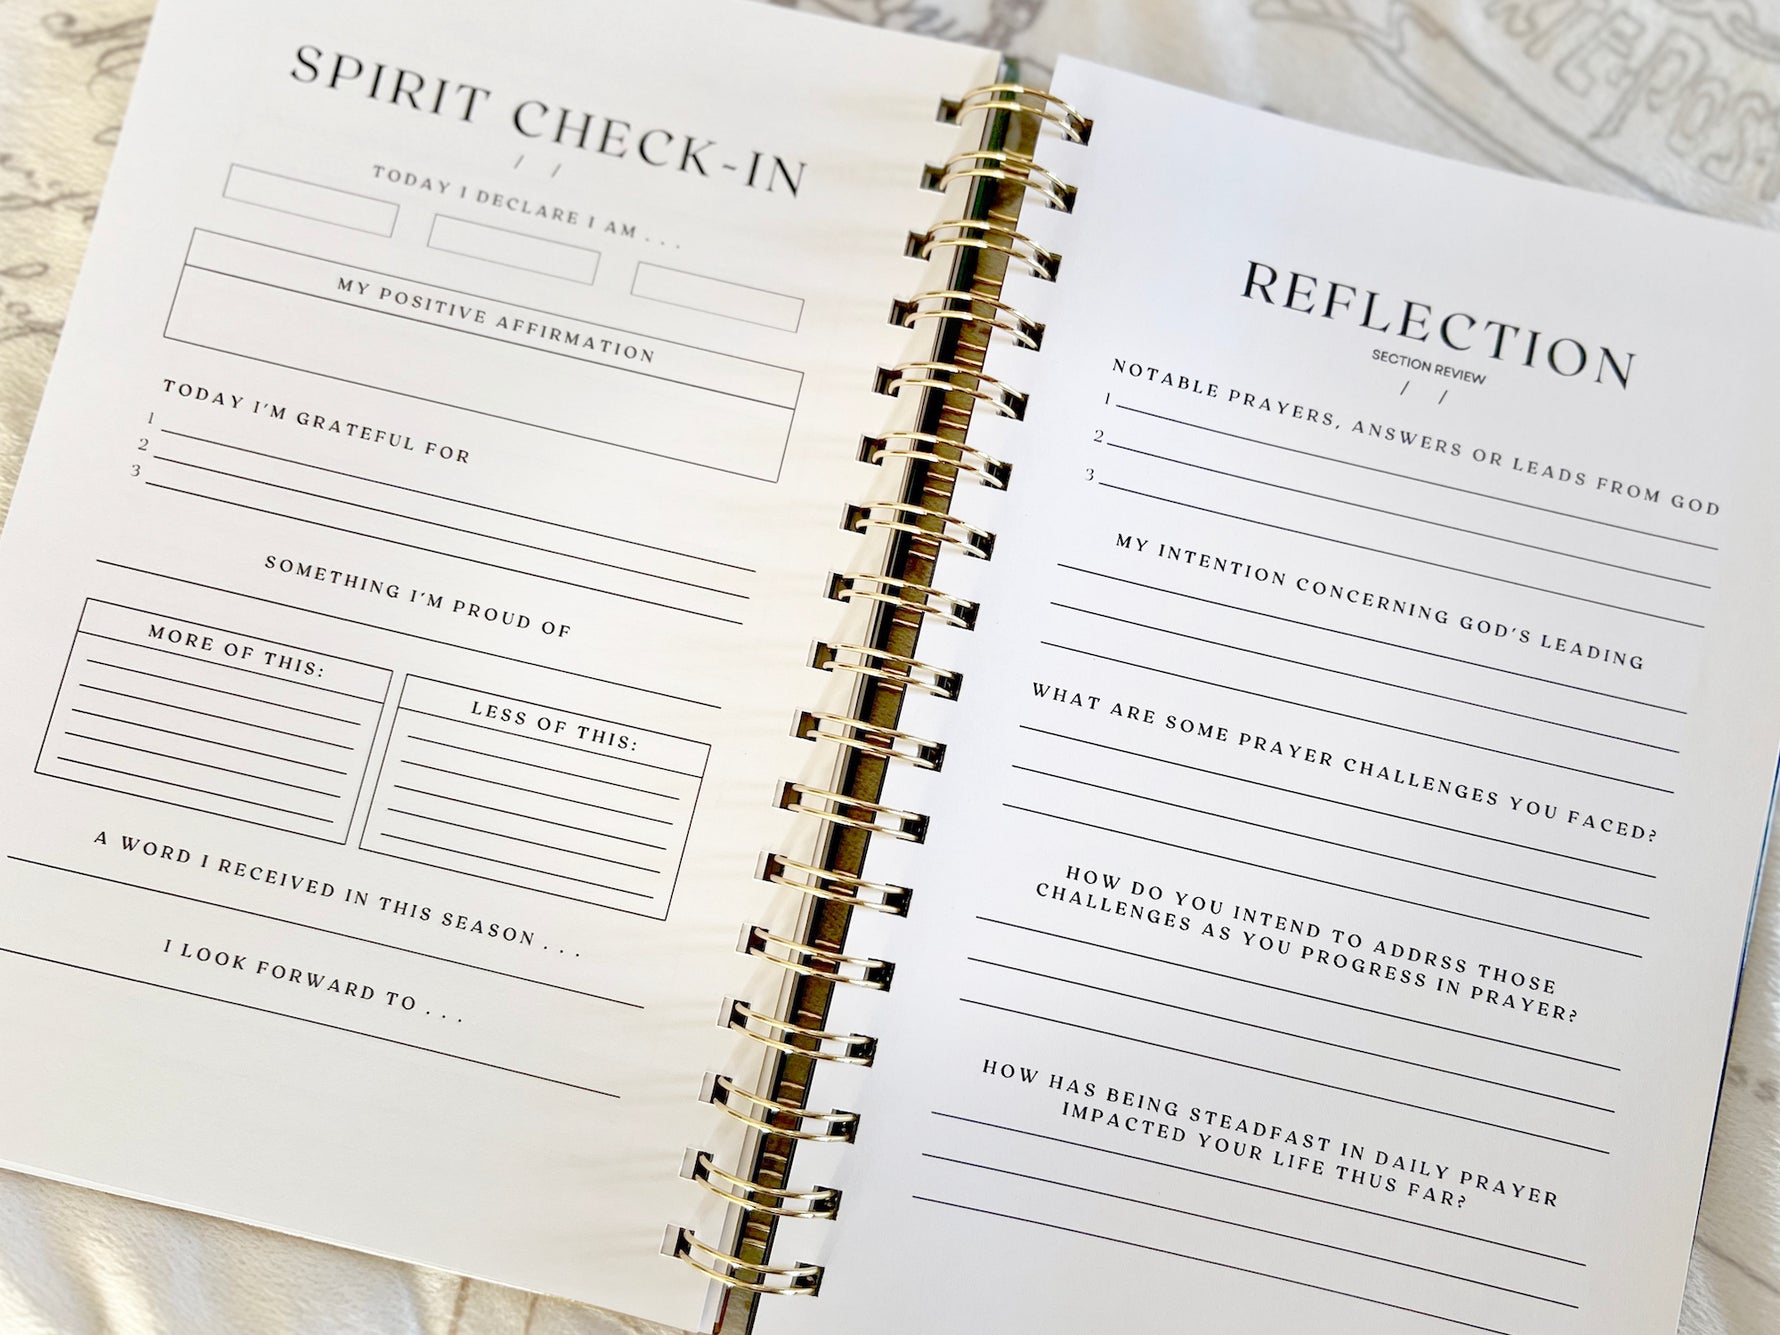 SPIRIT CHECK-IN
/ /
TODAY I DECLARE I AM . . .
MY POSITIVE AFFIRMATION
TODAY I'M GRATEFUL FOR
1
2
3
SOMETHING I'M PROUD OF
MORE OF THIS:
LESS OF THIS:
A WORD I RECEIVED IN THIS SEASON . . .
I LOOK FORWARD TO . . .
REFLECTION
SECTION REVIEW
/ /
NOTABLE PRAYERS, ANSWERS OR LEADS FROM GOD
1
2
3
MY INTENTION CONCERNING GOD'S LEADING
WHAT ARE SOME PRAYER CHALLENGES YOU FACED?
HOW DO YOU INTEND TO ADDRSS THOSE
CHALLENGES AS YOU PROGRESS IN PRAYER?
HOW HAS BEING STEADFAST IN DAILY PRAYER
IMPACTED YOUR LIFE THUS FAR?